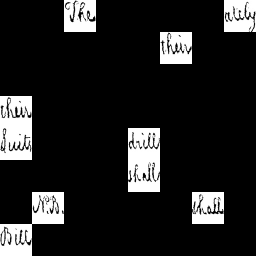 The ately
their
their
Suits drill
shall
N.B. shall
Bill